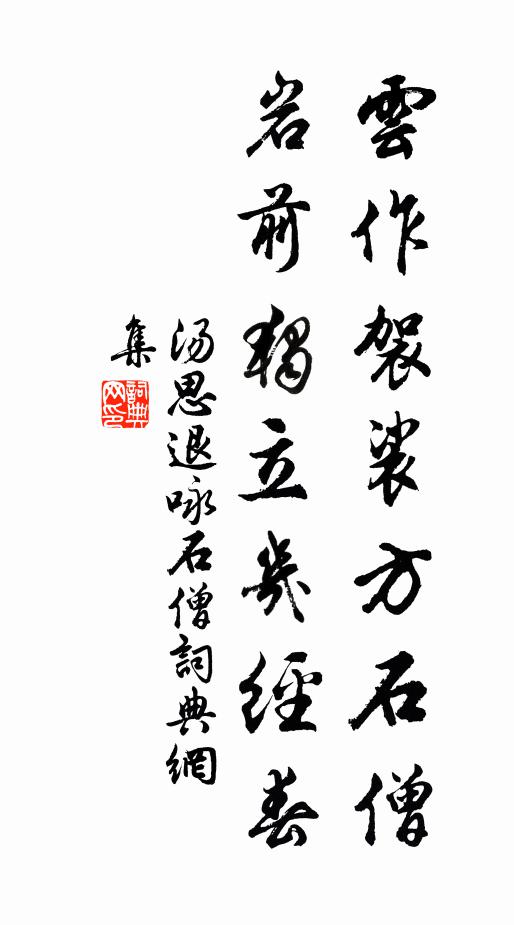 雲作袈裟方石僧
岩前獨立幾經春
湯思退咏石僧詞典網
集
詞典網印